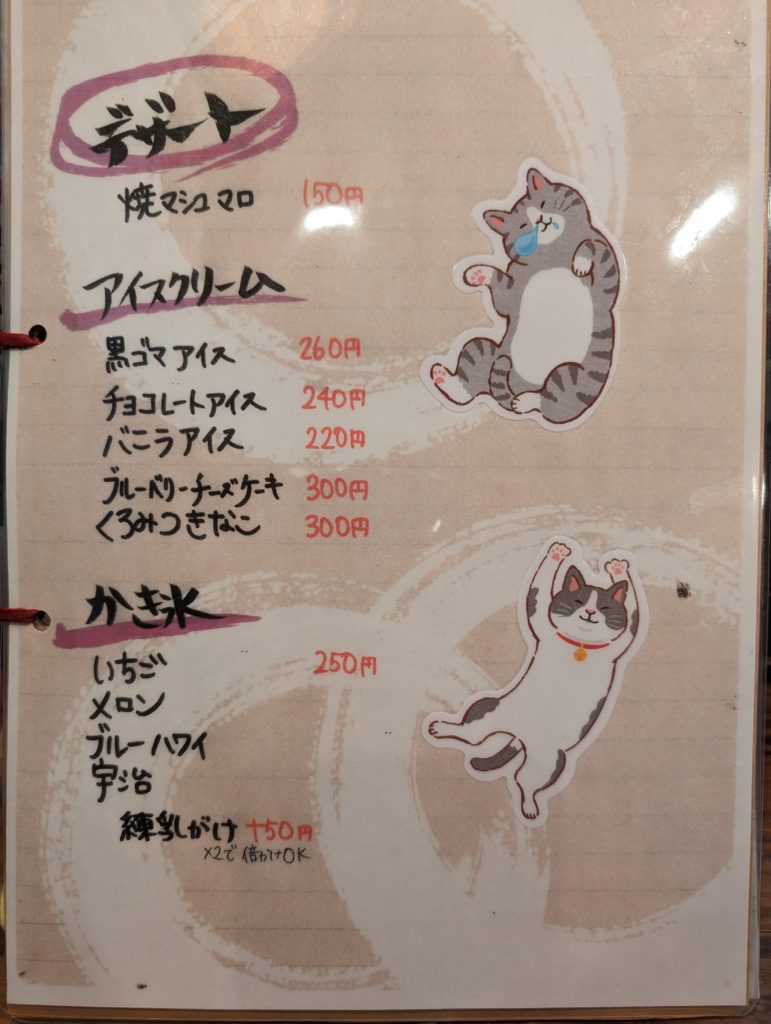 デザート
焼マシュマロ 150円
アイスクリーム
黒ゴマアイス 260円
チョコレートアイス 240円
バニラアイス 220円
ブルーベリーチーズケーキ 300円
くろみつきなこ 300円
かき氷
いちご 250円
メロン
ブルーハワイ
宇治
練乳がけ +50円
×2で倍がけOK